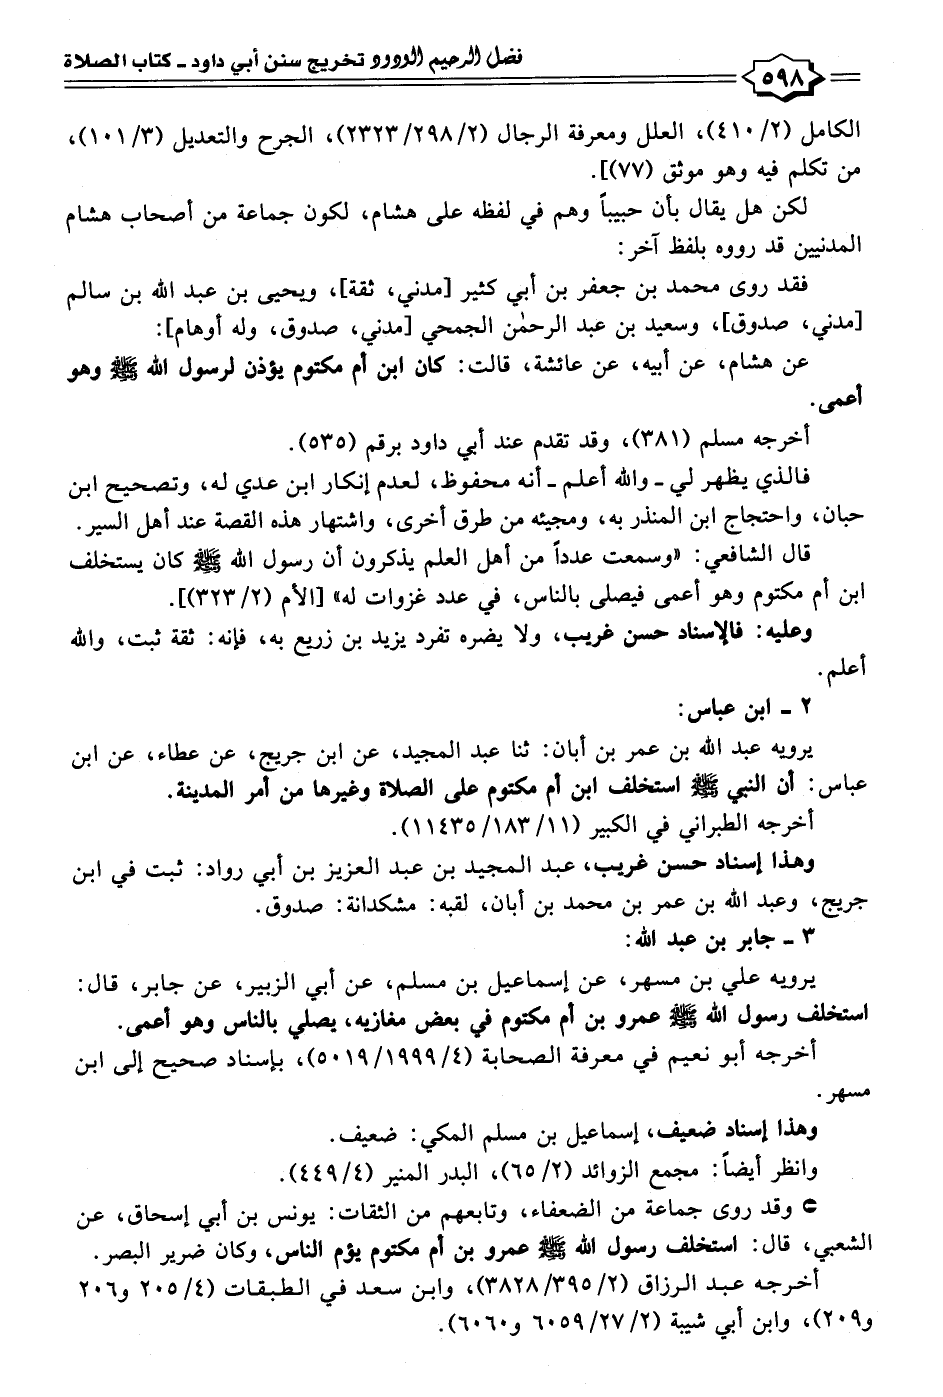 فضل الرحيم الودود تخريج سنن أبي داود - كتاب الصلاة
٥٩٨
الكامل (٤١٠/٢)، العلل ومعرفة الرجال (٢٣٢٣/٢٩٨/٢)، الجرح والتعديل (١٠١/٣)،
من تكلم فيه وهو موثق (٧٧)].
لكن هل يقال بأن حبيباً وهم في لفظه على هشام، لكون جماعة من أصحاب هشام
المدنيين قد رووه بلفظ آخر:
فقد روى محمد بن جعفر بن أبي كثير [مدني، ثقة]، ويحيى بن عبد الله بن سالم
[مدني، صدوق]، وسعيد بن عبد الرحمٰن الجمحي [مدني، صدوق، وله أوهام]:
عن هشام، عن أبيه، عن عائشة، قالت: كان ابن أم مكتوم يؤذن لرسول الله ﷺ وهو
أعمى.
أخرجه مسلم (٣٨١)، وقد تقدم عند أبي داود برقم (٥٣٥).
فالذي يظهر لي - والله أعلم - أنه محفوظ، لعدم إنكار ابن عدي له، وتصحيح ابن
حبان، واحتجاج ابن المنذر به، ومجيئه من طرق أخرى، واشتهار هذه القصة عند أهل السير.
قال الشافعي: «وسمعت عدداً من أهل العلم يذكرون أن رسول الله ﷺ كان يستخلف
ابن أم مكتوم وهو أعمى فيصلي بالناس، في عدد غزوات له» [الأم (٣٢٣/٢)].
وعليه: فالإسناد حسن غريب، ولا يضره تفرد يزيد بن زريع به، فإنه: ثقة ثبت، والله
أعلم.
٢ - ابن عباس:
يرويه عبد الله بن عمر بن أبان: ثنا عبد المجيد، عن ابن جريج، عن عطاء، عن ابن
عباس: أن النبي ﷺ استخلف ابن أم مكتوم على الصلاة وغيرها من أمر المدينة.
أخرجه الطبراني في الكبير (١١٤٣٥/١٨٣/١١).
وهذا إسناد حسن غريب، عبد المجيد بن عبد العزيز بن أبي رواد: ثبت في ابن
جريج، وعبد الله بن عمر بن محمد بن أبان، لقبه: مشكدانة: صدوق.
٣ - جابر بن عبد الله:
يرويه علي بن مسهر، عن إسماعيل بن مسلم، عن أبي الزبير، عن جابر، قال:
استخلف رسول الله ﷺ عمرو بن أم مكتوم في بعض مغازيه، يصلي بالناس وهو أعمى.
أخرجه أبو نعيم في معرفة الصحابة (٥٠١٩/١٩٩٩/٤)، بإسناد صحيح إلى ابن
مسهر.
وهذا إسناد ضعيف، إسماعيل بن مسلم المكي: ضعيف.
وانظر أيضاً: مجمع الزوائد (٦٥/٢)، البدر المنير (٤٤٩/٤).
وقد روى جماعة من الضعفاء، وتابعهم من الثقات: يونس بن أبي إسحاق، عن
الشعبي، قال: استخلف رسول الله ﷺ عمرو بن أم مكتوم يؤم الناس، وكان ضرير البصر.
أخرجه عبد الرزاق (٣٨٢٨/٣٩٥/٢)، وابن سعد في الطبقات (٢٠٥/٤ و٢٠٦
و٢٠٩)، وابن أبي شيبة (٦٠٥٩/٢٧/٢ و٦٠٦٠).